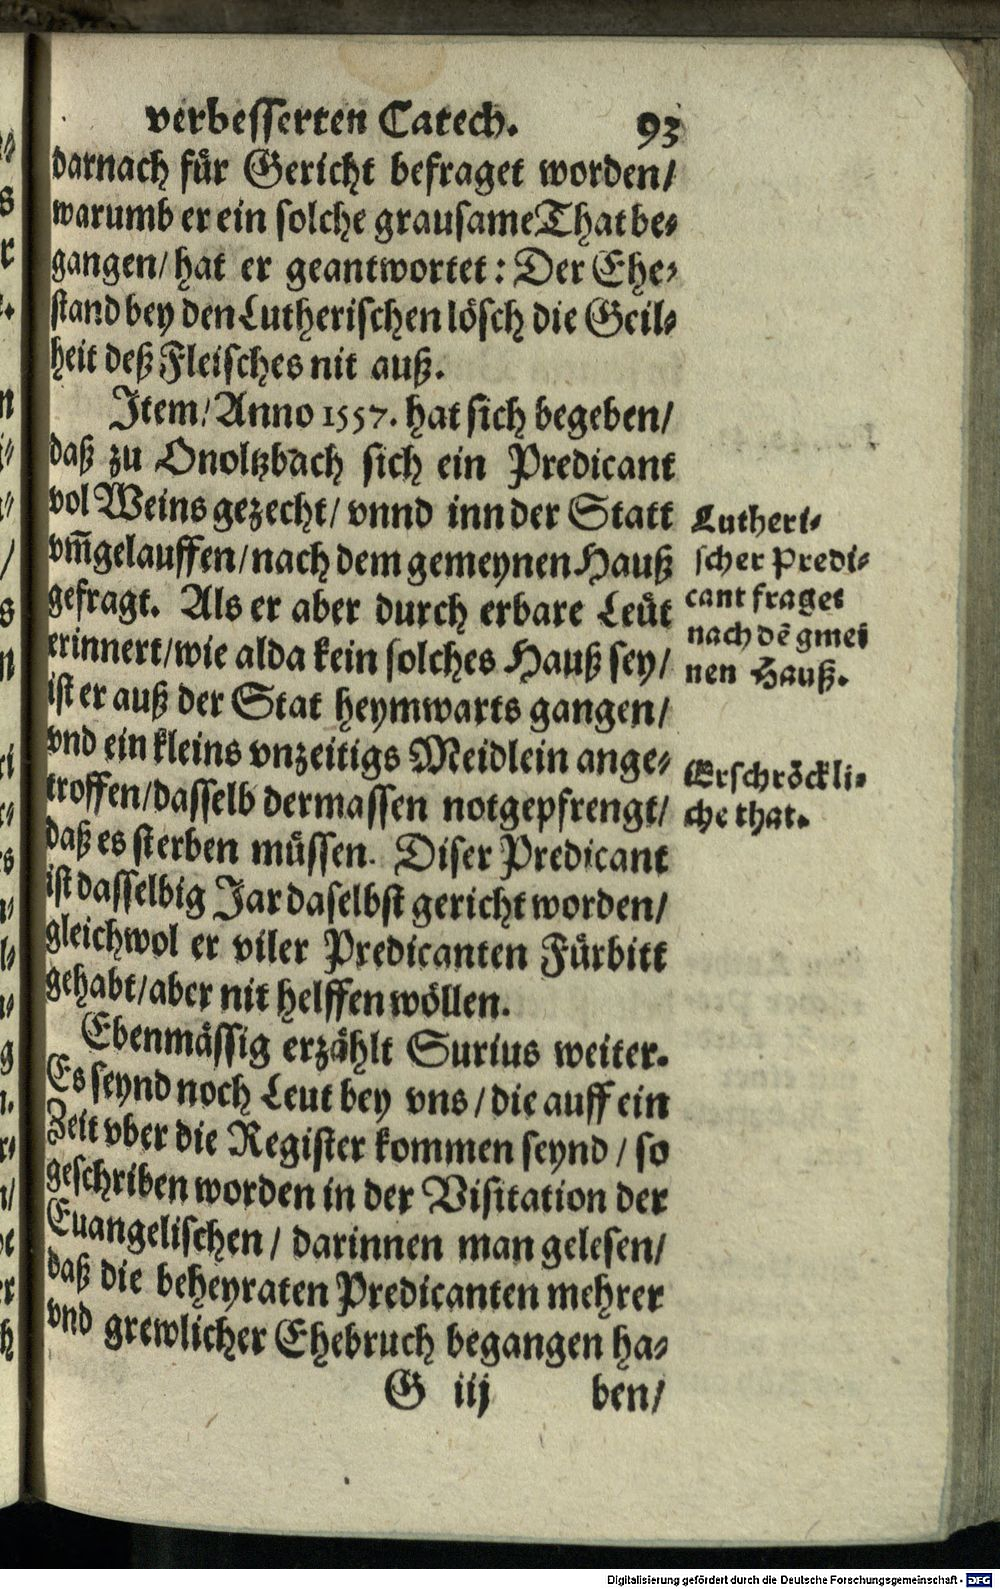 verbesserten Catech. 93
darnach für Gericht befraget worden/
warumb er ein solche grausame That be-
gangen/ hat er geantwortet: Der Ehe-
stand bey den Lutherischen lösch die Geil-
heit deß Fleisches nit auß.
Item/ Anno 1557. hat sich begeben/
daß zu Onoltzbach sich ein Predicant
vol Weins gezecht/ vnnd inn der Statt
vm̄gelauffen/ nach dem gemeynen Hauß
gefragt. Als er aber durch erbare Leüt
erinnert/ wie alda kein solches Hauß sey/
ist er auß der Stat heymwarts gangen/
vnd ein kleins vnzeitigs Meidlein ange-
troffen/ dasselb dermassen notgepfrengt/
daß es sterben müssen. Diser Predicant
ist dasselbig Jar daselbst gericht worden/
gleichwol er viler Predicanten Fürbitt
gehabt/ aber nit helffen wöllen.
Ebenmässig erzählt Surius weiter.
Es seynd noch Leut bey vns/ die auff ein
Zeit vber die Register kommen seynd/ so
geschriben worden in der Visitation der
Euangelischen/ darinnen man gelesen/
daß die beheyraten Predicanten mehrer
vnd grewlicher Ehebruch begangen ha-
G iij ben/
Lutheri-
scher Predi-
cant fraget
nach dē gmei
nen Hauß.
Erschröckli-
che that.
Digitalisierung gefördert durch die Deutsche Forschungsgemeinschaft - DFG